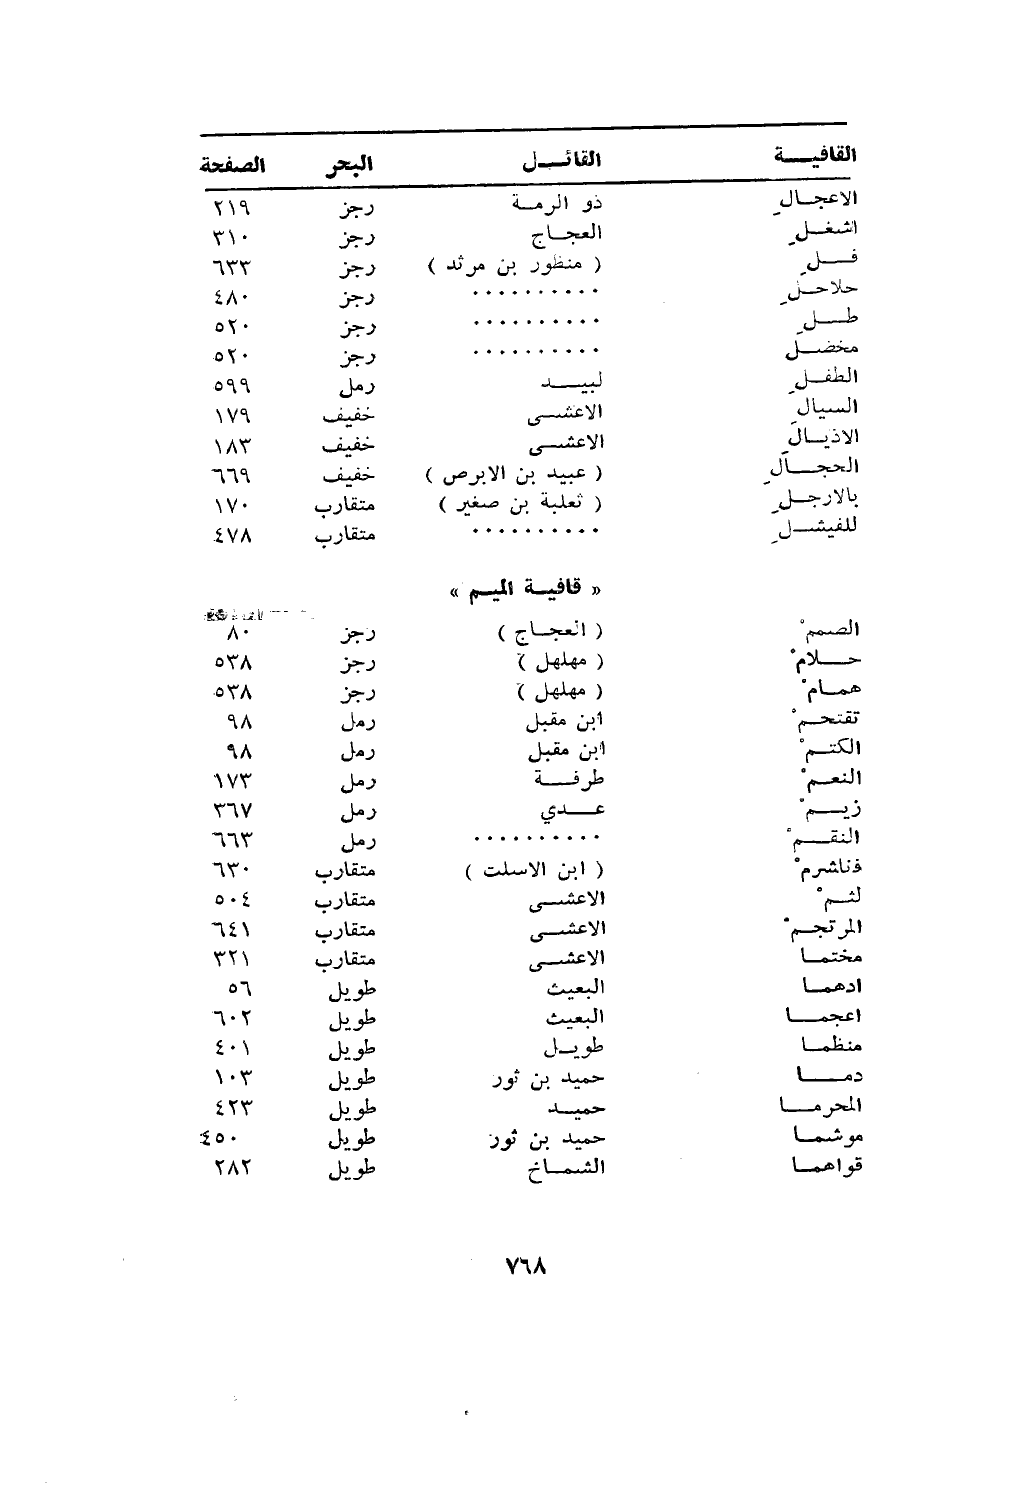 القافيـــة القائــل البحر الصفحة
الاعجــالِ ذو الرمـة رجز ٢١٩
اشغــلِ العجـاج رجز ٣١٠
فــلِ ( منظور بن مرثد ) رجز ٦٣٣
حلاحــلِ .......... رجز ٤٨٠
طــلِ .......... رجز ٥٢٠
مخضــل .......... رجز ٥٢٠
الطفــلِ لبيــد رمل ٥٩٩
السيالِ الاعشــى خفيف ١٧٩
الاذيــالِ الاعشــى خفيف ١٨٣
الحجــالِ ( عبيد بن الابرص ) خفيف ٦٦٩
بالارجــلِ ( ثعلبة بن صغير ) متقارب ١٧٠
للفيشــلِ .......... متقارب ٤٧٨
« قافيـة الميـم »
الصممْ ( العجـاج ) رجز ٨٠
حــلامْ ( مهلهل ) رجز ٥٣٨
همـامْ ( مهلهل ) رجز ٥٣٨
تقتحـمْ ابن مقبل رمل ٩٨
الكتـمْ ابن مقبل رمل ٩٨
النعـمْ طرفــة رمل ١٧٣
زيــمْ عــدي رمل ٣٦٧
النقــمْ .......... رمل ٦٦٣
فناشرمْ ( ابن الاسلت ) متقارب ٦٣٠
لثـمْ الاعشــى متقارب ٥٠٤
المرتجـمْ الاعشــى متقارب ٦٤١
مختمـا الاعشــى متقارب ٣٢١
ادهمـا البعيث طويل ٥٦
اعجمــا البعيث طويل ٦٠٢
منظمـا طويـل طويل ٤٠١
دمــا حميد بن ثور طويل ١٠٣
المحرمــا حميــد طويل ٤٢٣
موشمـا حميد بن ثور طويل ٤٥٠
قواهمـا الشمـاخ طويل ٢٨٢
٧٦٨